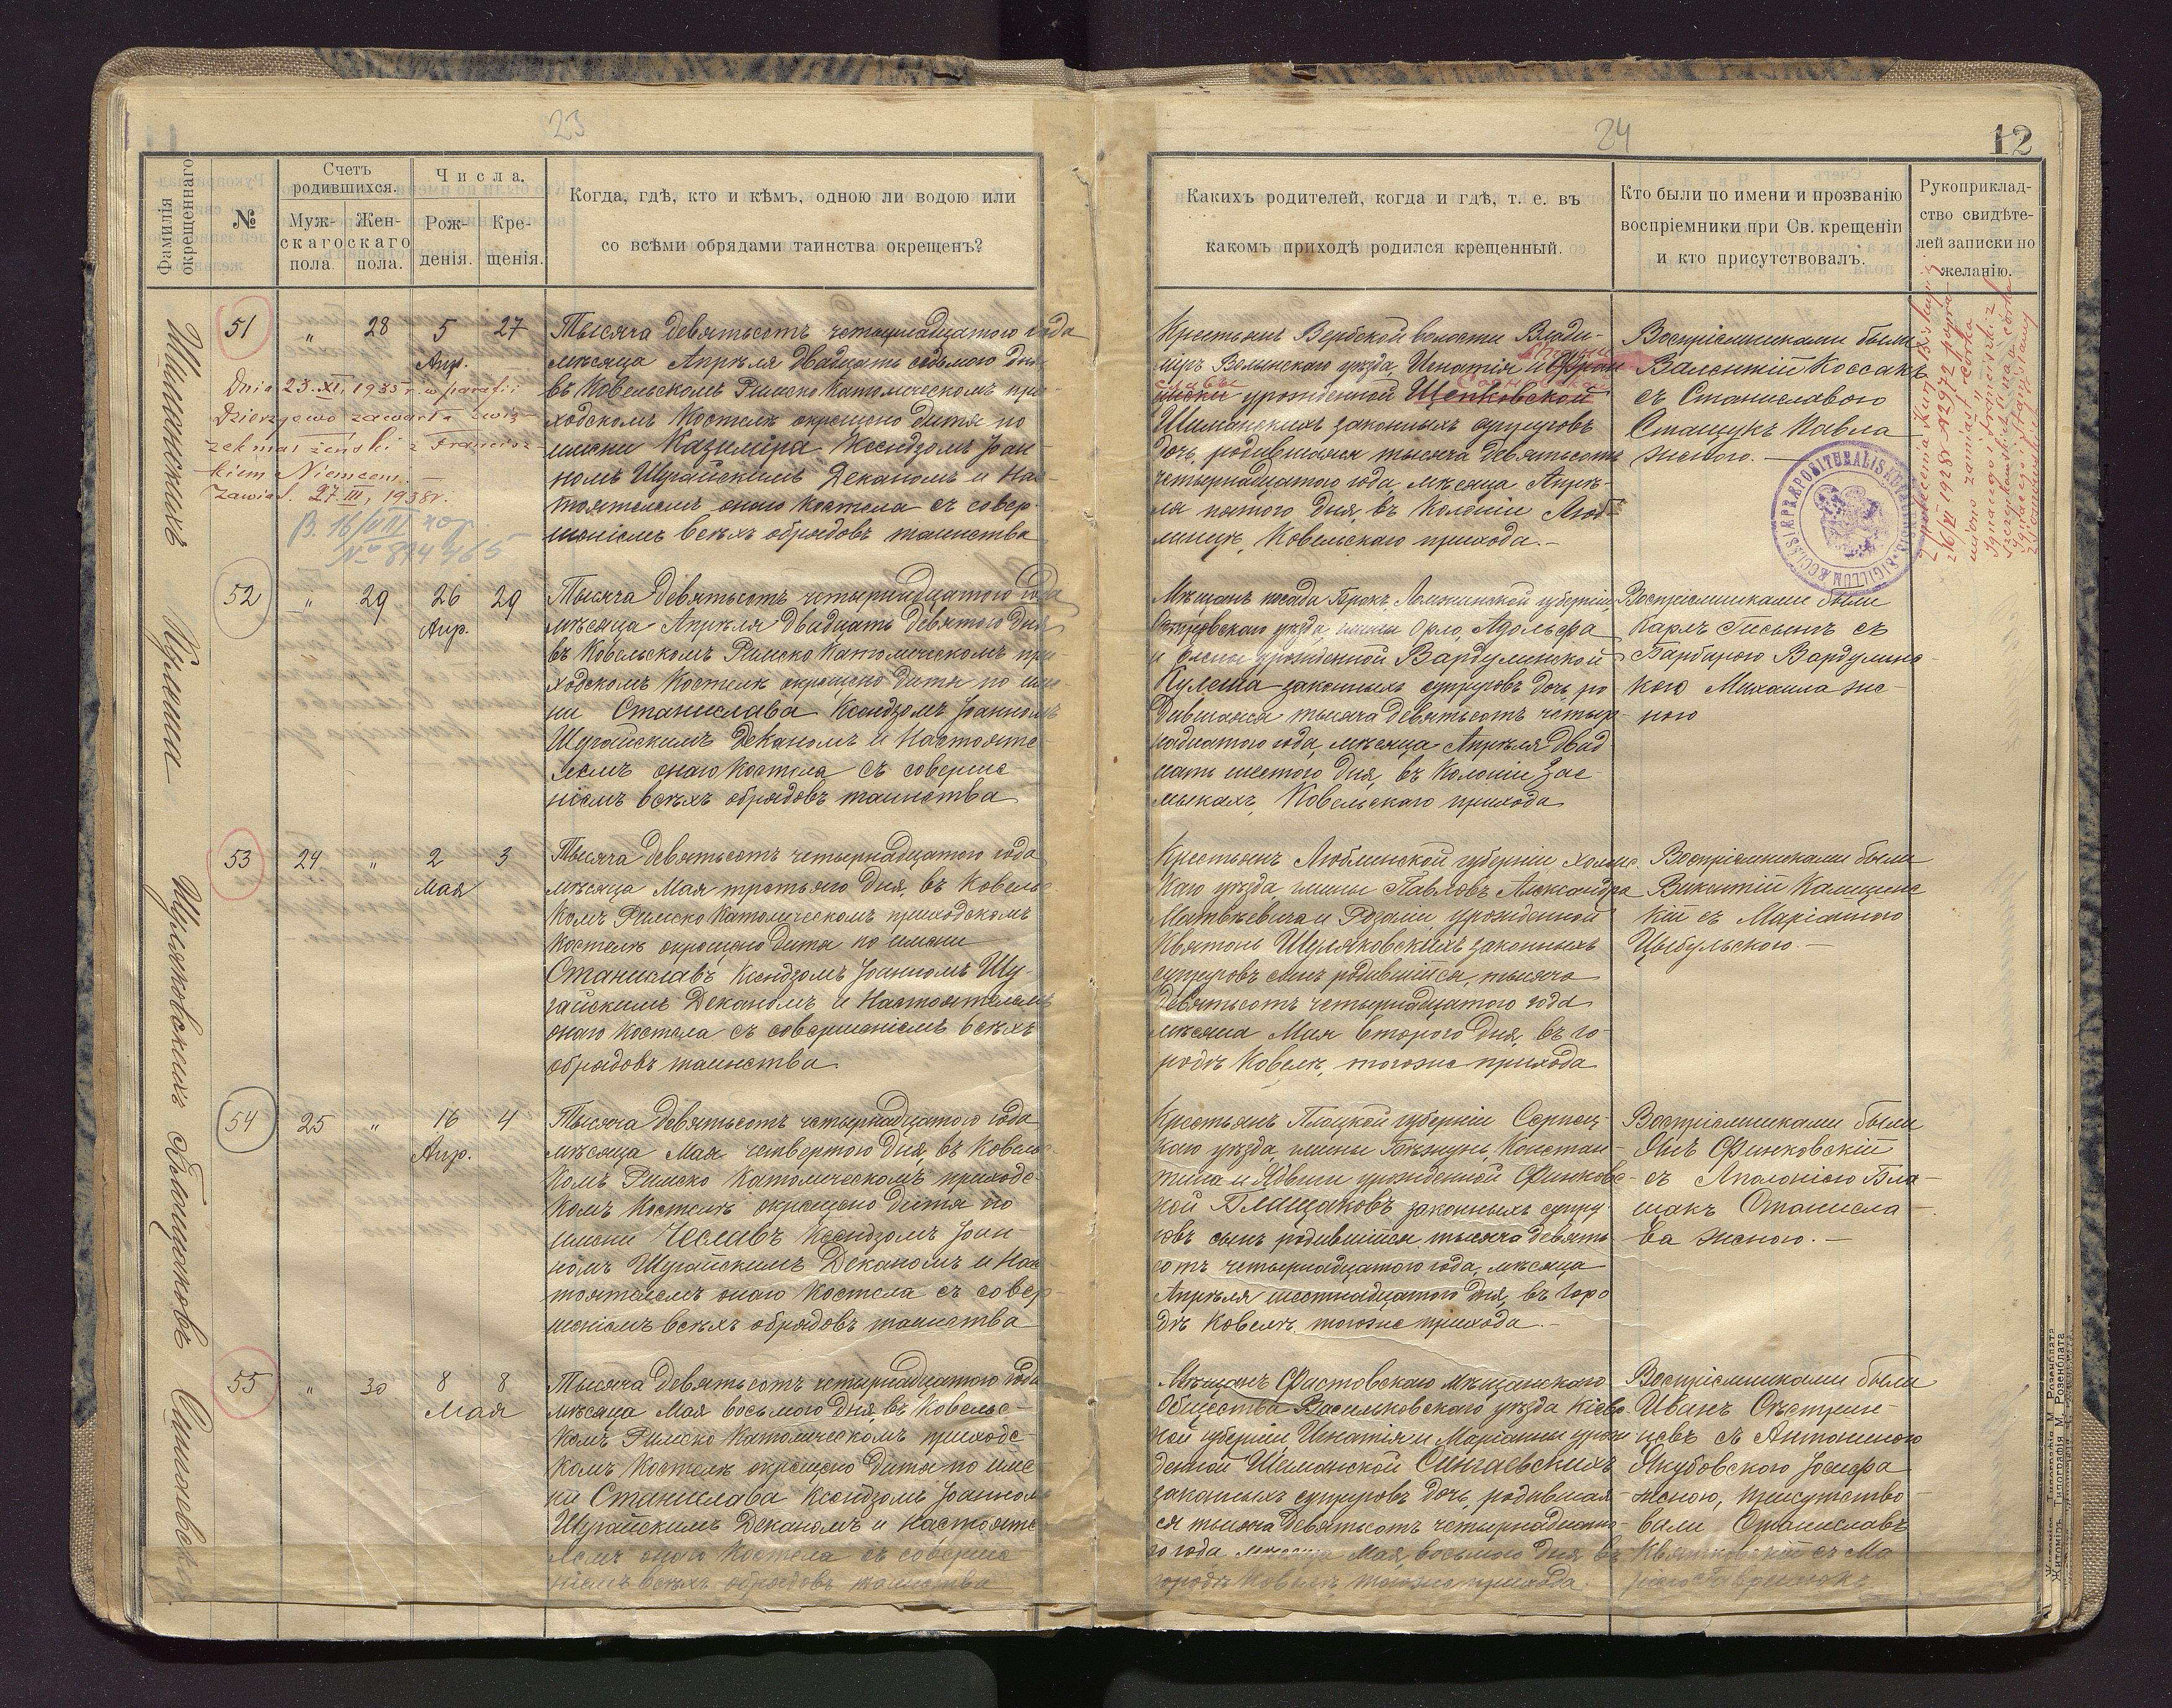 23
Фамилія окрещеннаго
№
Счетъ родившихся.
Муж-скаго пола.
Жен-скаго пола.
Числа,
Рож-денія.
Кре-щенія.
Когда, гдѣ, кто и кѣмъ, одною ли водою или
со всѣми обрядами таинства окрещенъ?
Шиманскихъ
51
„ 28 5 27
Апр.
Dnia 23.XI.1935 r. w parafii
Dzierzgowo zawarła zwią-
zek małżeński z Francisz-
kiem Niemcem.
Zawiad. 27.III.1938r.
№ 874/465
Тысяча девятьсотъ четырнадцатого года
мѣсяца Апрѣля двадцать седьмого дня
въ Ковельскомъ Римско Католическомъ при-
ходскомъ Костелѣ окрещено дитя по
имени Казиміра Ксендзомъ Іоан-
номъ Шугайскимъ Деканомъ и Нас-
тоятелемъ онаго Костела съ совер-
шеніемъ всѣхъ обрядовъ таинства
Кулеша
52
„ 29 26 29
Апр.
Тысяча девятьсотъ четырнадцатого года
мѣсяца Апрѣля двадцать девятого дня
въ Ковельскомъ Римско Католическомъ при-
ходскомъ Костелѣ окрещено дитя по име-
ни Станислава Ксендзомъ Іоанномъ
Шугайскимъ Деканомъ и Настояте-
лемъ онаго Костела съ соверше-
ніемъ всѣхъ обрядовъ таинства
Шуляковскихъ
53
24 „ 2 3
Мая
Тысяча девятьсотъ четырнадцатого года
мѣсяца Мая третьяго дня, въ Ковельс-
комъ Римско Католическомъ приходскомъ
Костелѣ окрещено дитя по имени
Станиславъ Ксендзомъ Іоанномъ Шу-
гайскимъ Деканомъ и Настоятелемъ
онаго Костела съ совершеніемъ всѣхъ
обрядовъ таинства
Блащаковъ
54
25 „ 16 4
Апр.
Тысяча девятьсотъ четырнадцатого года
мѣсяца Мая четвертого дня, въ Ковельс-
комъ Римско Католическомъ приходс-
комъ Костелѣ окрещено дитя по
имени Чеславъ Ксендзомъ Іоан-
номъ Шугайскимъ Деканомъ и Нас-
тоятелемъ онаго Костела съ совер-
шеніемъ всѣхъ обрядовъ таинства
55
„ 30 8 8
Мая
Тысяча девятьсотъ четырнадцатого года
мѣсяца Мая восьмого дня, въ Ковельс-
комъ Римско Католическомъ приходс-
комъ Костелѣ окрещено дитя по име-
ни Станислава Ксендзомъ Іоанномъ
Шугайскимъ Деканомъ и Настояте-
лемъ онаго Костела съ соверше-
ніемъ всѣхъ обрядовъ таинства
24
12
Какихъ родителей, когда и гдѣ, т. е. въ
какомъ приходѣ родился крещенный.
Кто были по имени и прозванію
воспріемники при Св. крещеніи
и кто присутствовалъ.
Рукоприклад-
ство свидѣте-
лей записки по
желанію.
Крестьянъ Вербской волости Влади-
міръ Волынскаго уѣзда, Игнатія и Фран
циски урожденной Щепковской
Шиманскихъ законныхъ супруговъ
дочь, родившаяся тысяча девятьсотъ
четырнадцатого года мѣсяца Апрѣ-
ля пятого дня, въ Колоніи Люб-
линцѣ, Ковельскаго прихода.-
Воспріемниками были
Валентій Коссакъ
съ Станиславою
Стащукъ Павла
женою.-
Мѣщанъ посада Брокъ Ломжинской губерніи,
Островскаго уѣзда, гмины Орло, Адольфа
и Елены урожденной Вардулинской
Кулеша законныхъ супруговъ дочь, ро
дившаяся тысяча девятьсотъ четыр-
надцатого года, мѣсяца Апрѣля двад
цать шестого дня, въ Колоніи Зас-
мыкахъ, Ковельскаго прихода
Воспріемниками были
Карлъ Гисынъ съ
Барбарою Вардулинс-
кою Михаила же-
ною
Крестьянъ Люблинской губерніи, Холмс-
каго уѣзда, гмины Павловъ, Александра
Матвѣевича и Розаліи, урожденной
Квятонь Шуляковскихъ законныхъ
супруговъ сынъ родившійся, тысяча
девятьсотъ четырнадцатого года
мѣсяца Мая второго дня, въ го-
родѣ Ковелѣ, тогоже прихода
Воспріемниками были
Викентій Калищенс
кій съ Маріанною
Цыбульскою.-
Крестьянъ Плоцкой губерніи Серпец-
каго уѣзда, гмины Бѣжунь, Констан-
тина и Ядвиги урожденной Финковс-
кой Блащаковъ законныхъ супру-
говъ сынъ родившійся, тысяча девять
сотъ четырнадцатого года, мѣсяца
Апрѣля шестнадцатого дня, въ горо
дѣ Ковелѣ, тогоже прихода.-
Воспріемниками были
Янъ Финковскій
съ Аполоніею Бла-
щакъ Станисла-
ва женою.-
Мѣщанъ Фастовскаго мѣщанскаго
Общества Васильковскаго уѣзда Кіевс-
кой губерніи, Игнатія и Маріанны урож
денной Шиманской Сингаевскихъ
законныхъ супруговъ дочь, родившая-
ся тысяча девятьсотъ четырнадцато-
го года, мѣсяца Мая, восьмого дня, въ
городѣ Ковелѣ, тогоже прихода.
Воспріемниками были
Иванъ
съ Антониною
Якубовскою Іосифа
женою, присутство-
вали Станиславъ
Квятковскій съ Ма
Житомiръ. Типографія М. Розенблата